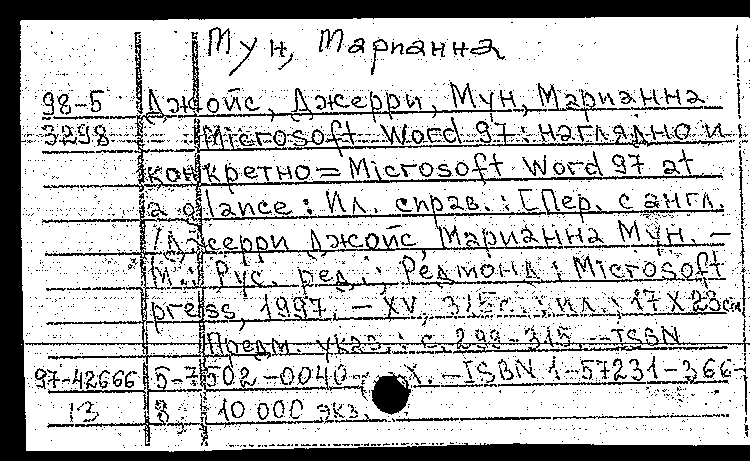 Мун, Марианна
98-5 Джойс, Джерри, Мун, Марианна
3298 Microsoft Word 97: наглядно и
конкретно = Microsoft Word 97 at
a glance : Ил. справ. : [Пер. с англ.
/ Джерри Джойс, Марианна Мун. –
М. : Рус. ред. ; Редмонд : Microsoft
press, 1997. – XV, 315с. : ил. ; 17 X 23см
Предм. указ.: с. 299-315. -- ISBN
97-42666 5-7502-0040- X. – ISBN 1-57231-366-
13 8 10 000 экз.